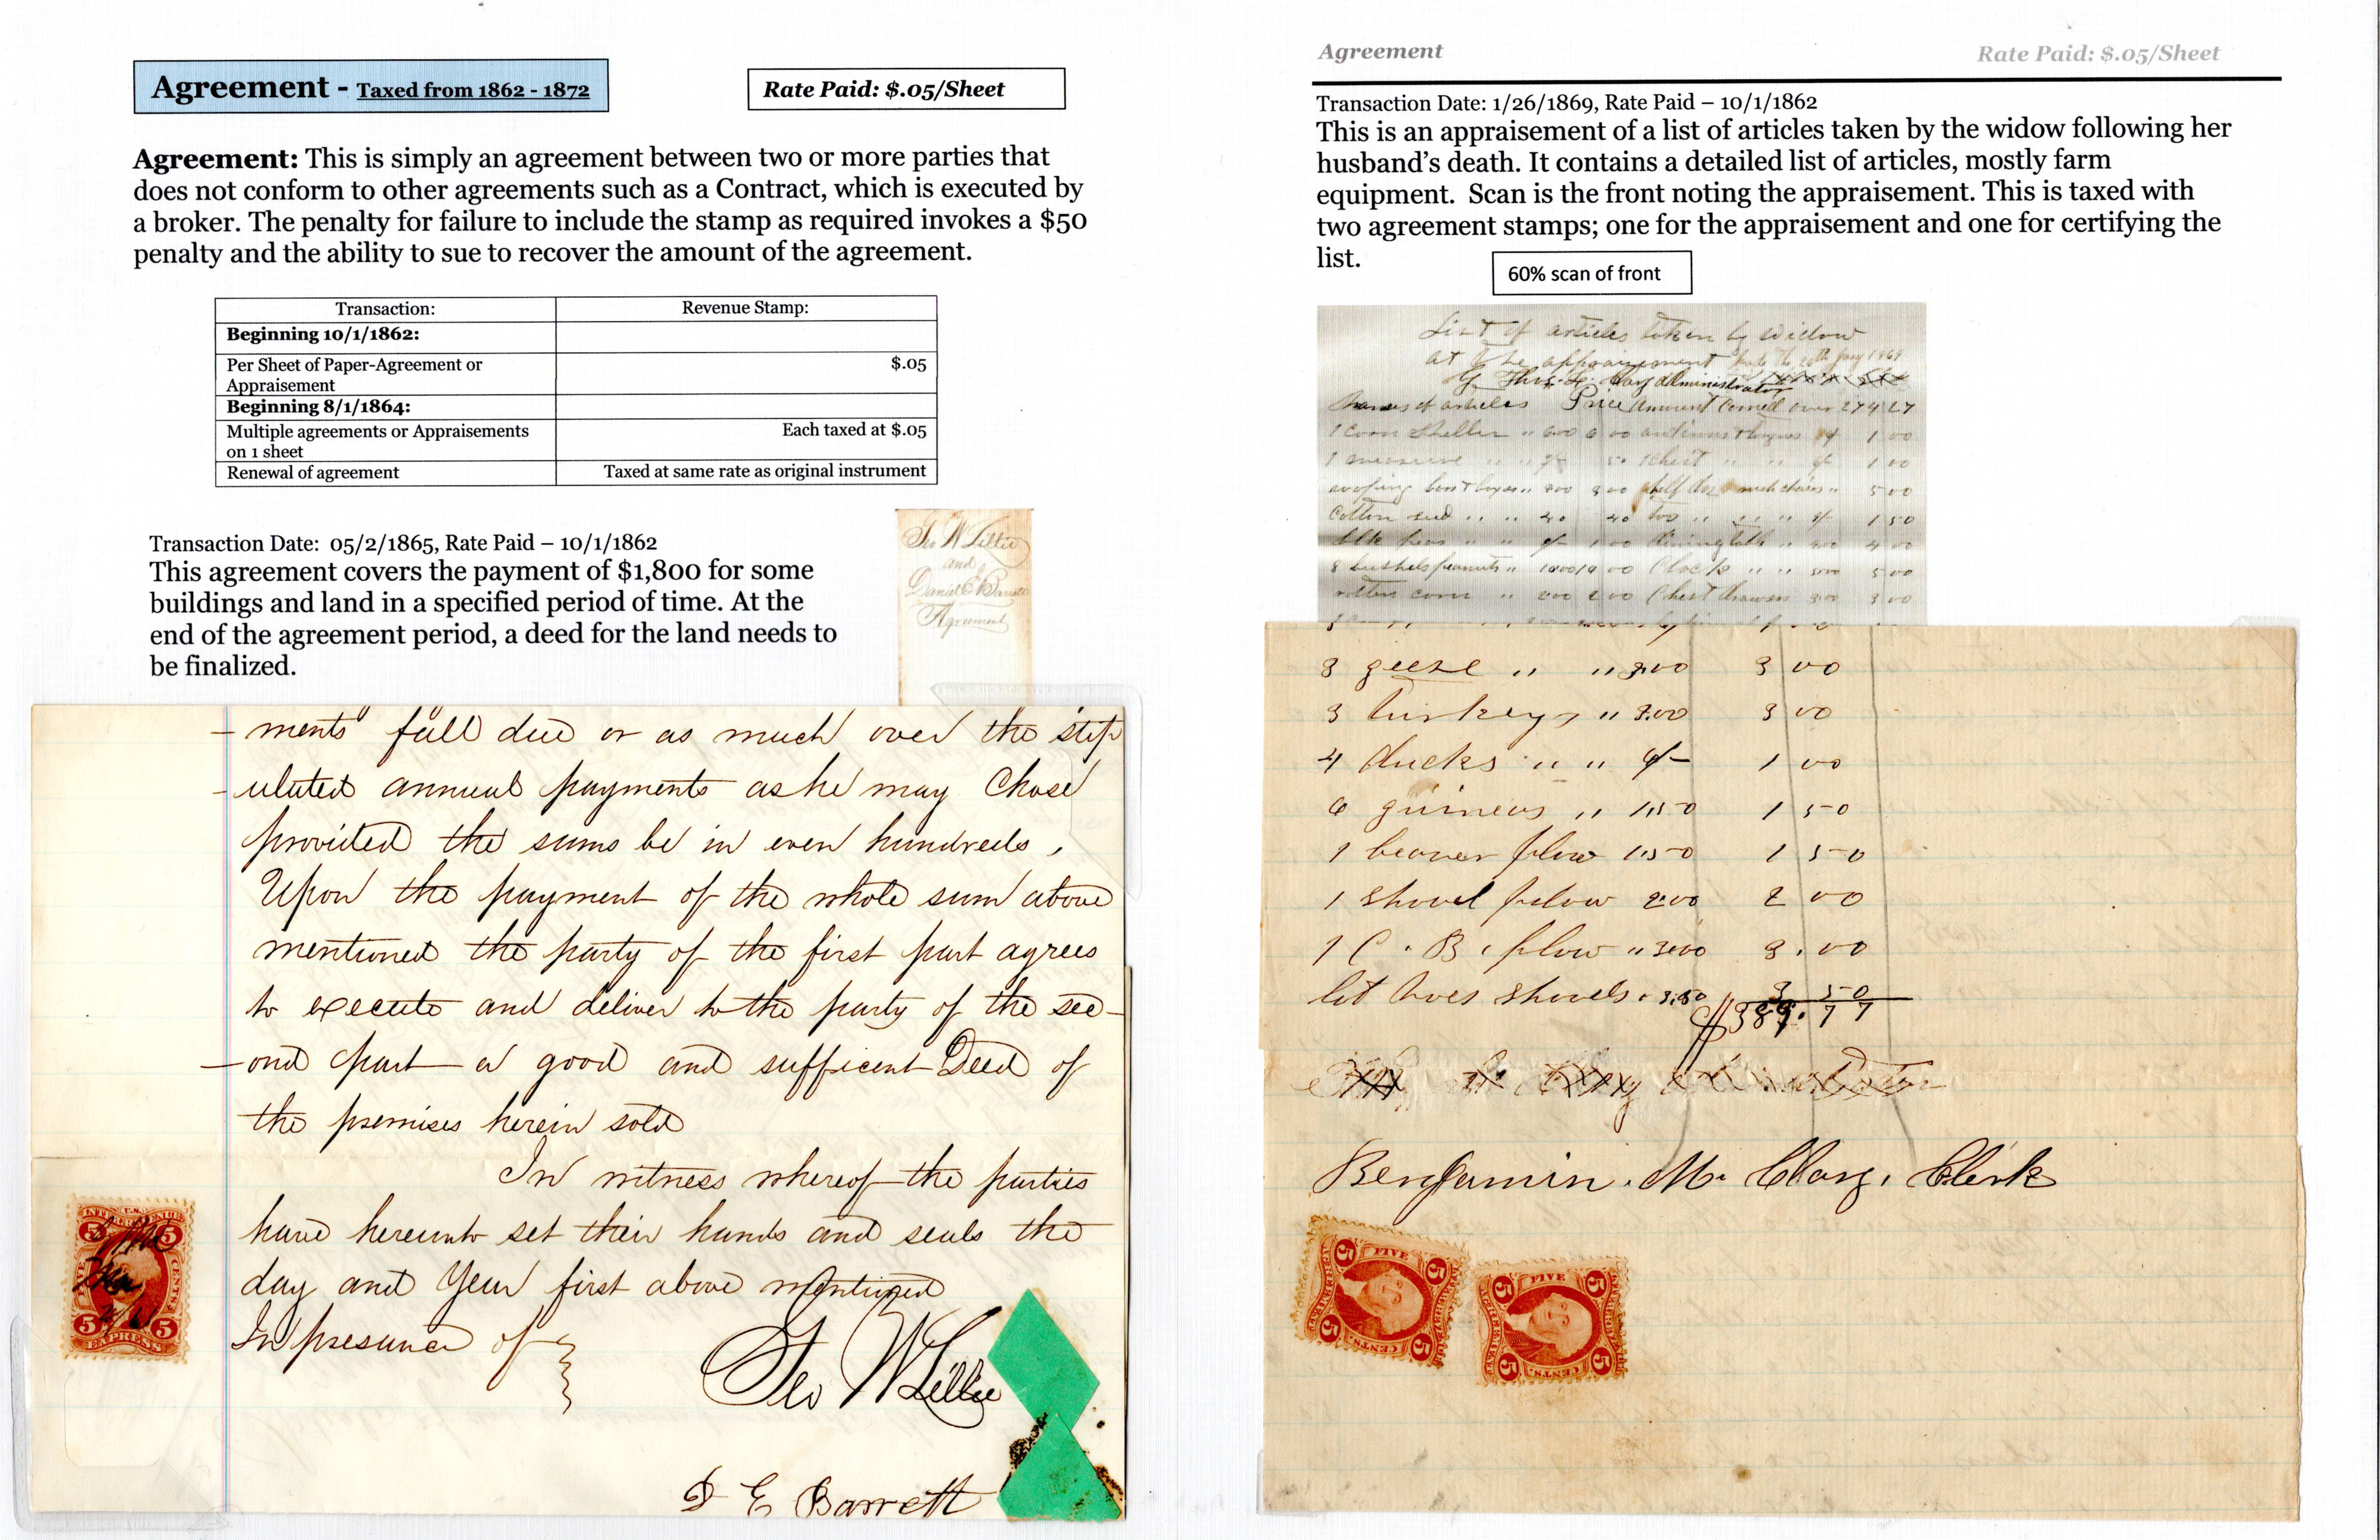 Agreement - Taxed from 1862 - 1872
Rate Paid: $.05/Sheet
Agreement: This is simply an agreement between two or more parties that
does not conform to other agreements such as a Contract, which is executed by
a broker. The penalty for failure to include the stamp as required invokes a $50
penalty and the ability to sue to recover the amount of the agreement.
Transaction: Revenue Stamp:
Beginning 10/1/1862:
Per Sheet of Paper-Agreement or $.05
Appraisement
Beginning 8/1/1864:
Multiple agreements or Appraisements Each taxed at $.05
on 1 sheet
Renewal of agreement Taxed at same rate as original instrument
Transaction Date: 05/2/1865, Rate Paid – 10/1/1862
This agreement covers the payment of $1,800 for some
buildings and land in a specified period of time. At the
end of the agreement period, a deed for the land needs to
be finalized.
Geo W Lillie
and
Daniel E Barrett
Agreement
-ments fall due or as much over the stip
-ulated annual payments as he may Chose
provided the sums be in even hundreds,
Upon the payment of the whole sum above
mentioned the party of the first part agrees
to execute and deliver to the party of the sec-
-ond part a good and sufficent Deed of
the premises herein sold
In witness whereof the parties
have hereunto set their hands and seals the
day and Year first above mentioned
In presence of
Geo W Lillie
D E Barrett
5 5
CENTS
5 5
EXPRESS
Agreement
Rate Paid: $.05/Sheet
Transaction Date: 1/26/1869, Rate Paid – 10/1/1862
This is an appraisement of a list of articles taken by the widow following her
husband's death. It contains a detailed list of articles, mostly farm
equipment. Scan is the front noting the appraisement. This is taxed with
two agreement stamps; one for the appraisement and one for certifying the
list.
60% scan of front
List of articles taken by widow
at the appraisement made the 26th Jany 1869
administrator
Names of articles Price Amount Carried over 274 27
1 corn Sheller " 600 6 00 1 00
1 measure 50 1 chest " " 1 00
5 00
Cotton seed " " 40 40 1 50
peas dining table " 400 4 00
8 bushels peanuts " 1000 10 00 Clock " " 500 5 00
rotten corn " 200 2 00 Chest drawers 300 3 00
3 geese " " 3.00 3 00
3 turkeys " 3.00 3 00
4 ducks " " 1 00
6 guineas " 1.50 1 50
1 beaver plow 1.50 1 50
1 shovel plow 2.00 2 00
1 C. B. plow " 3.00 3.00
lot hoes shovels. 3.50 3 50
$389.77
Benjamin. M. Clary, Clerk
FIVE
5 5
AGREEMENT
5 5
CENTS
FIVE
5 5
AGREEMENT
5 5
CENTS